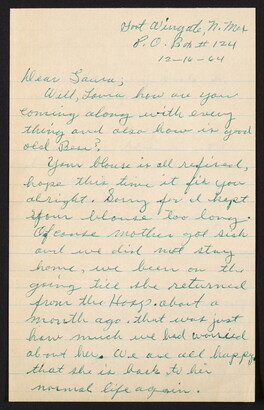 Fort Wingate, N. Mex
P. O. Box # 124
12-16-64
Dear Lovia,
Well, Lovia how are you
coming along with every
thing and also how is good
old Bess?
Your blouse is all refixed,
hope this time it fit you
alright. Sorry for I kept
your blouse too long.
Of couse mother got sick
and we did not stay
home, we been on the
going till she returned
from the Hosp. about a
month ago, that was just
how much we had worried
about her. We are all happy
that she is back to her
normal life again.